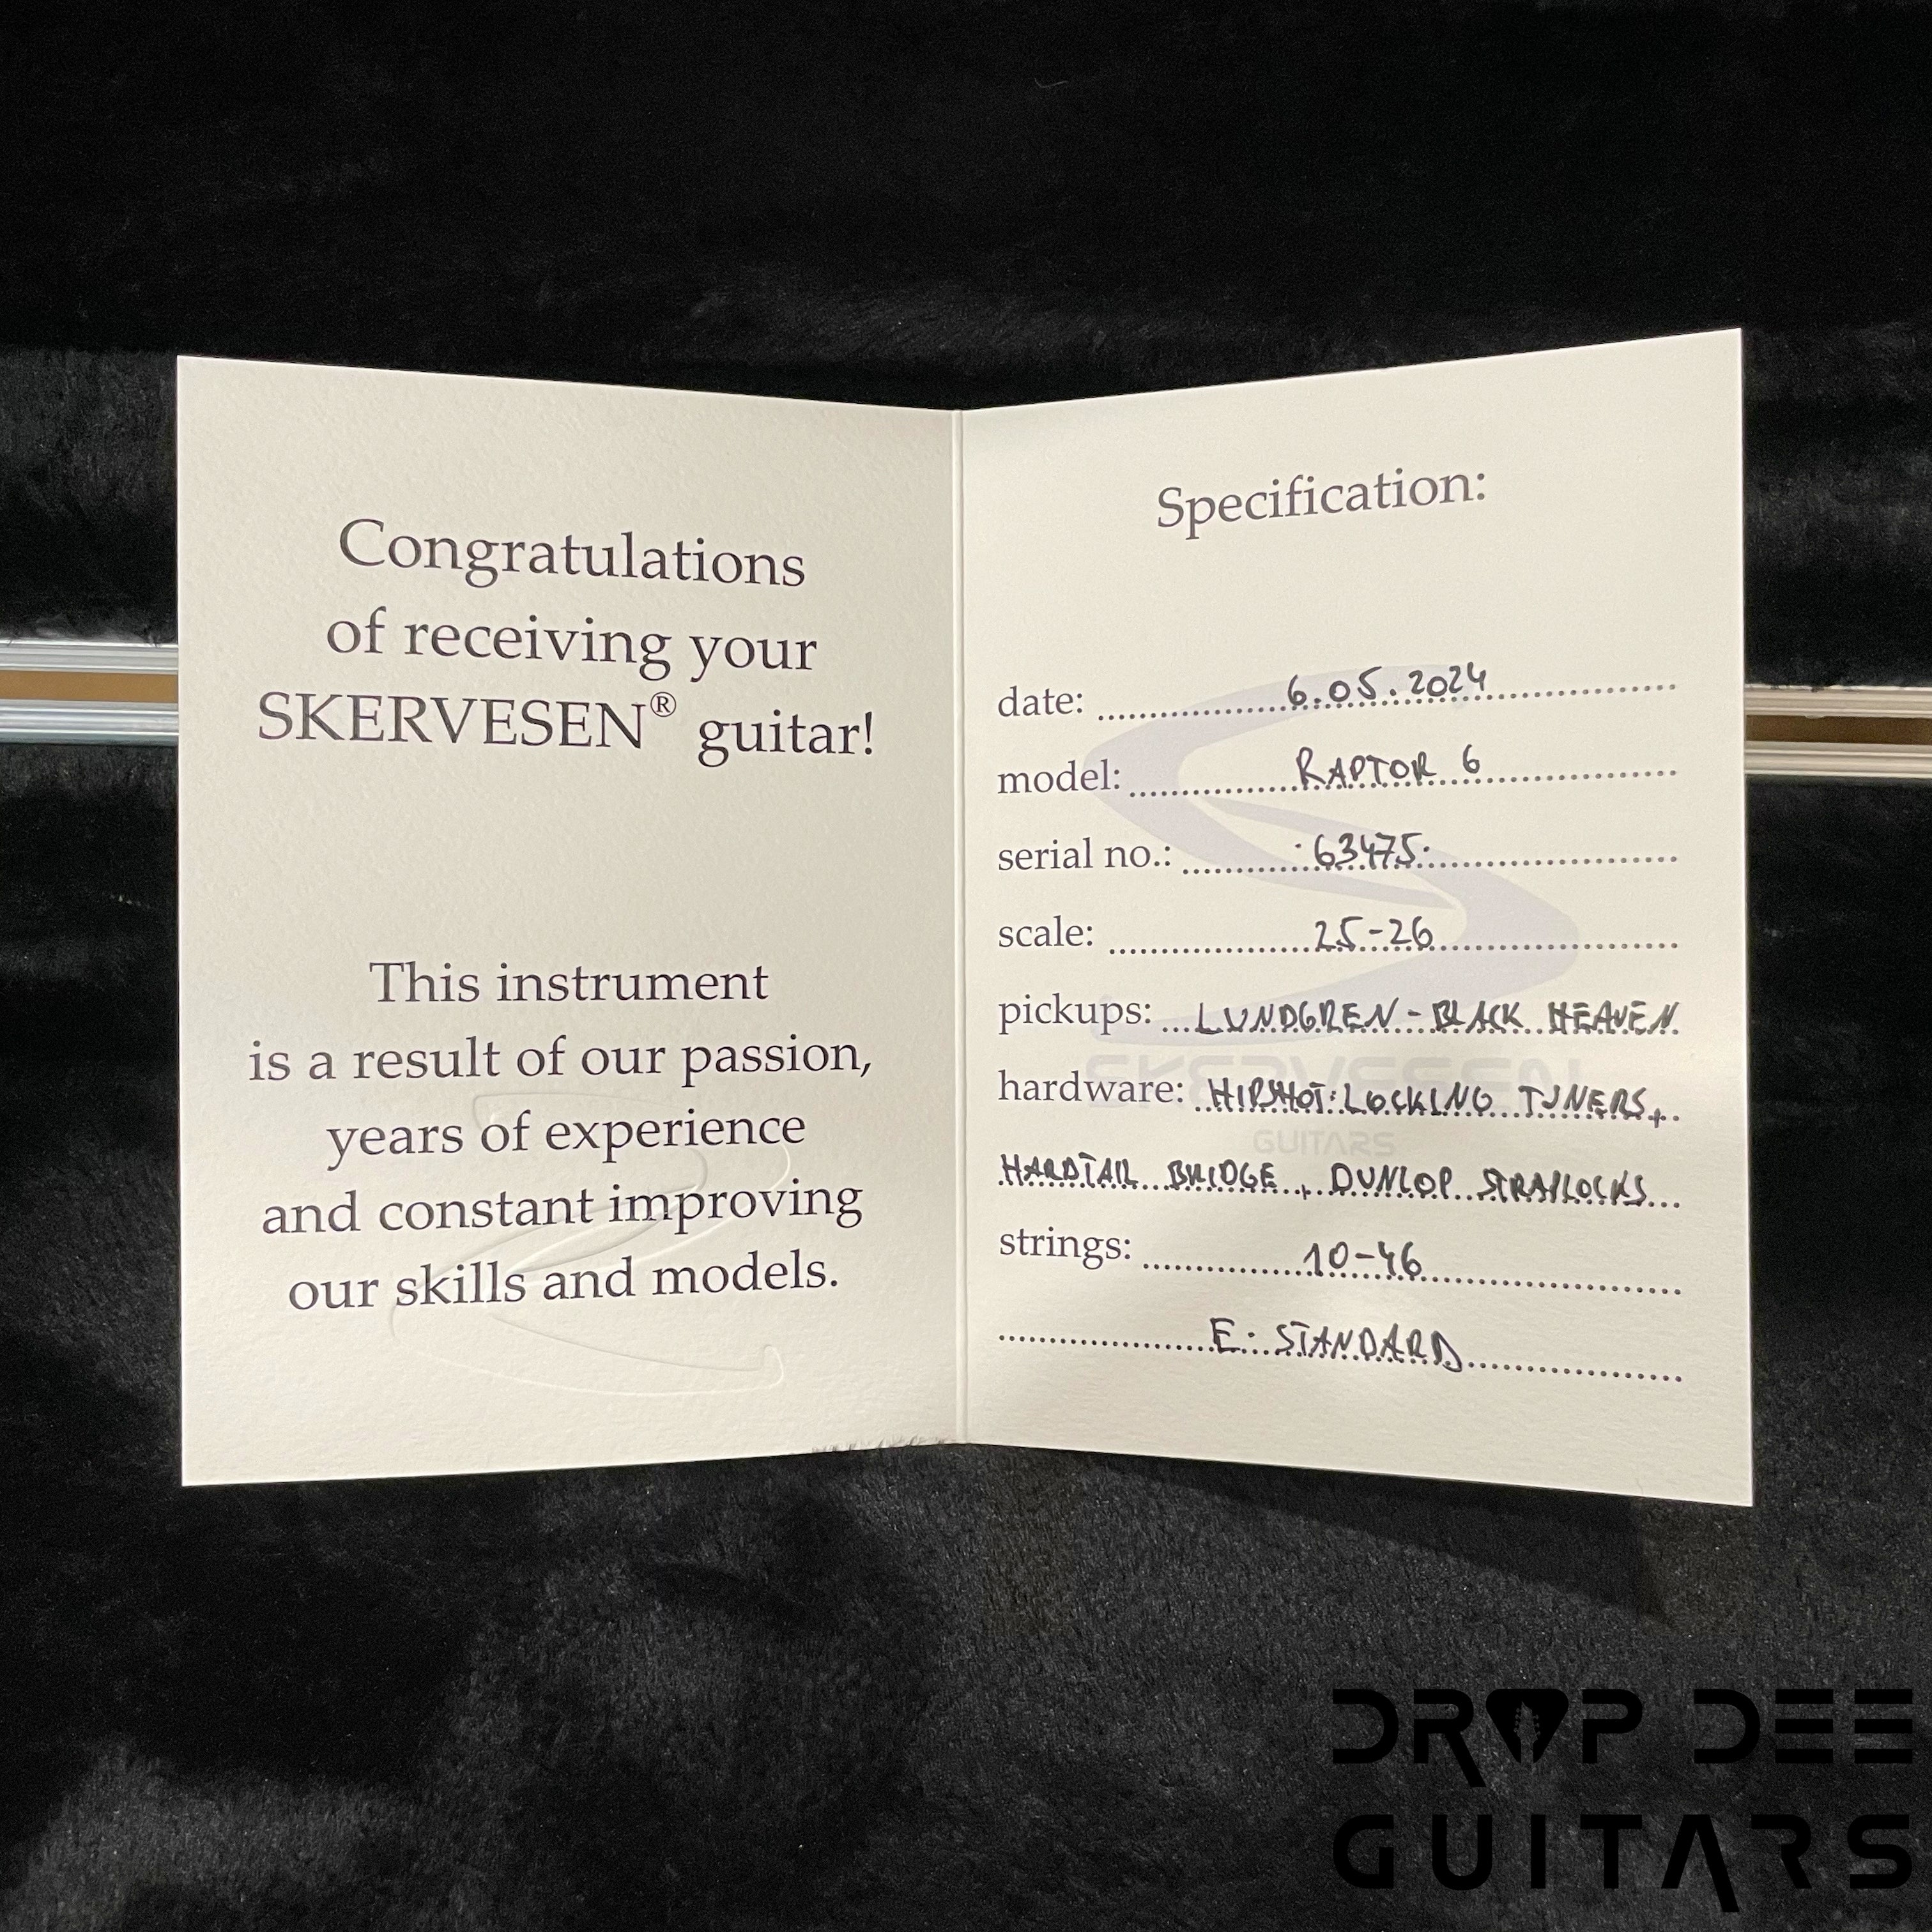 Congratulations
of receiving your
SKERVESEN® guitar!
This instrument
is a result of our passion,
years of experience
and constant improving
our skills and models.
Specification:
date: 6.05.2024
model: RAPTOR 6
serial no.: 63475
scale: 25-26
pickups: LUNDGREN - BLACK HEAVEN
hardware: HIPSHOT: LOCKING TUNERS,
HARDTAIL BRIDGE, DUNLOP STRAPLOCKS
strings: 10-46
E: STANDARD
SKERVESEN
GUITARS
DROP DEE
GUITARS